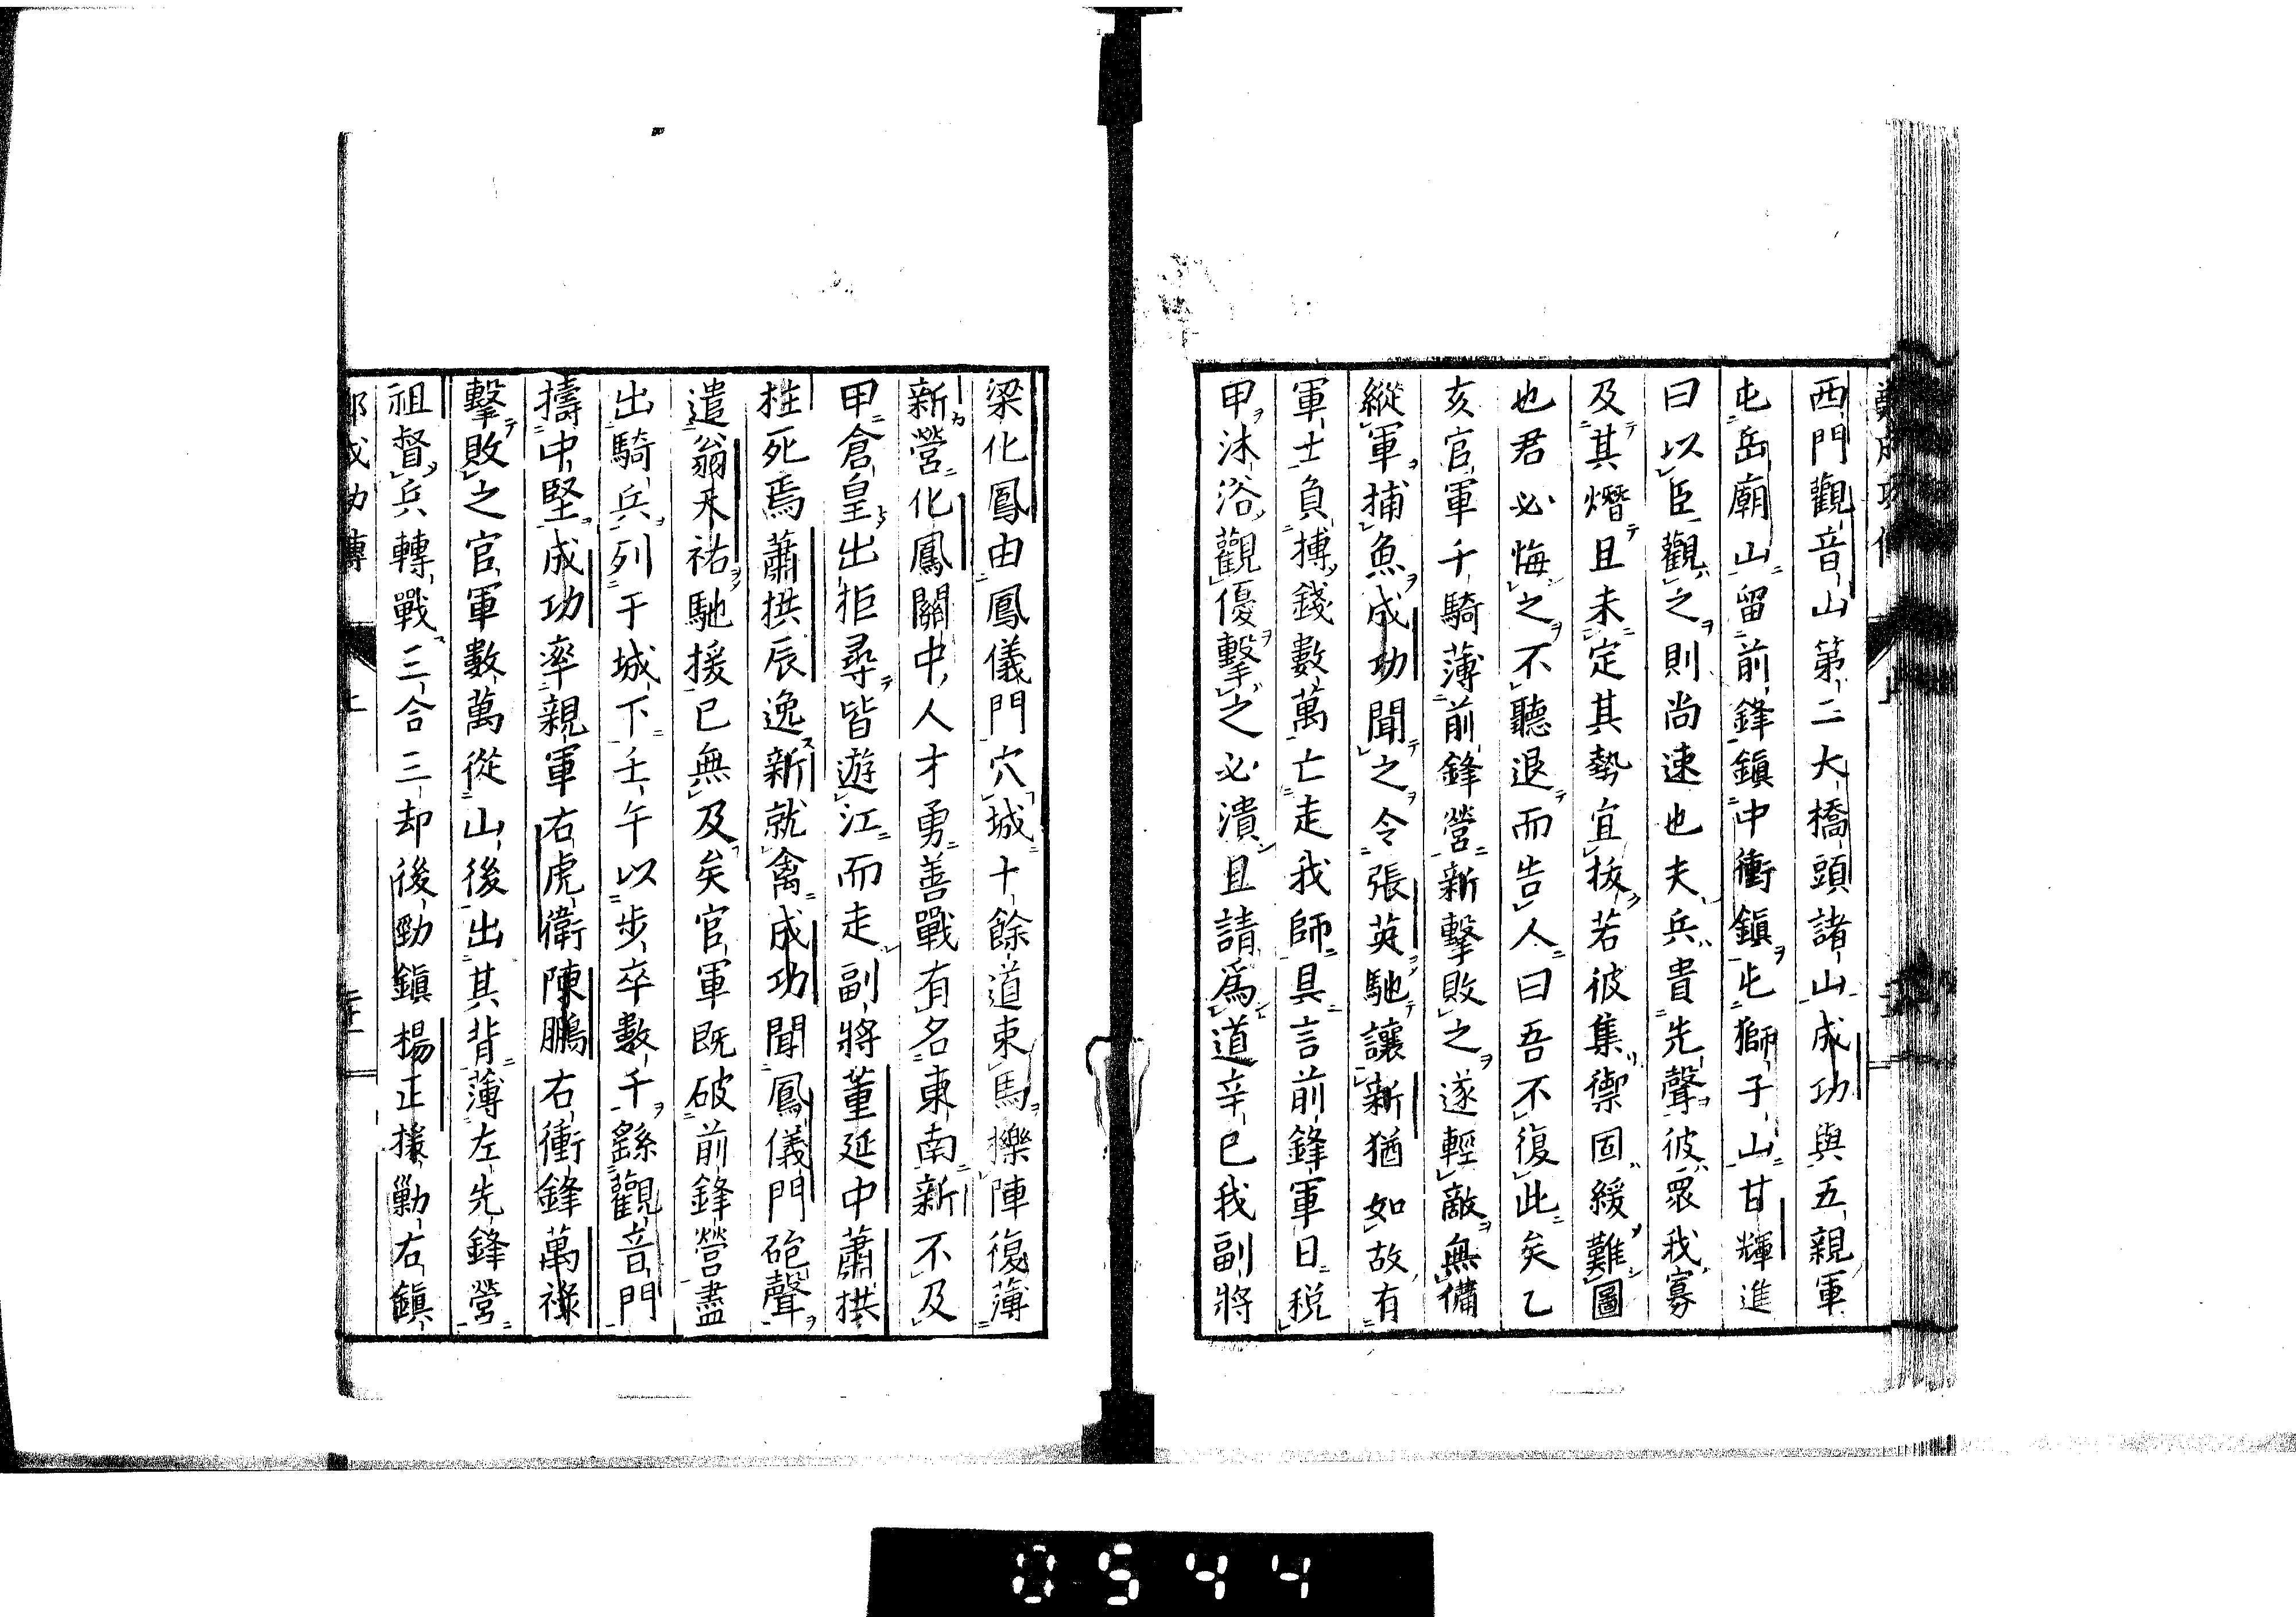 西門觀音山第二大橋頭諸山成功與五親軍
屯岳廟山留前鋒鎭中衝鎭屯獅子山甘輝進
曰以臣觀之則尚速也夫兵貴先聲彼衆我寡
及其熸且未定其勢宜拔若彼集禦固緩難圖
也君必悔之不聽退而告人曰吾不復此矣乙
亥官軍千騎薄前鋒營新擊敗之遂輕敵無備
縱軍捕魚成功聞之令張英馳讓新猶如故有
軍士負摶錢數萬亡走我師具言前鋒軍日税
甲沐浴觀優擊之必潰且請爲道辛巳我副將
梁化鳳由鳳儀門穴城十餘道束馬擽陣復薄
新營化鳳關中人才勇善戰有名東南新不及
甲倉皇出拒尋皆遊江而走副將董延中蕭拱
柱死焉蕭拱辰逸新就禽成功聞鳳儀門砲聲
遣翁天祐馳援已無及矣官軍既破前鋒營盡
出騎兵列于城下壬午以步卒數千繇觀音門
擣中堅成功率親軍右虎衛陳鵬右衝鋒萬祿
擊敗之官軍數萬從山後出其背薄左先鋒營
祖督兵轉戰三合三却後勁鎭楊正援勦右鎭
成功傳
上